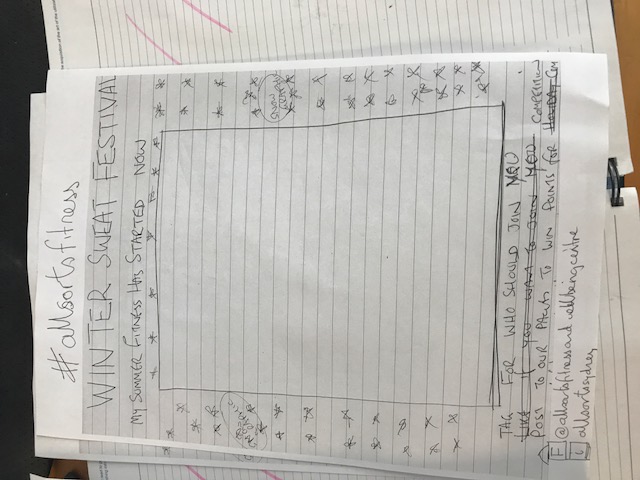 #allsortsfitness
WINTER SWEAT FESTIVAL
MY SUMMER FITNESS HAS STARTED NOW
SNOW GRAPHIC
TAG FOR WHO SHOULD JOIN YOU
LIKE IF YOU WANT TO JOIN
POST TO OUR TO WIN POINTS FOR COMPETITION
F @allsortsfitnessandwellbeingcentre
allsortssydney